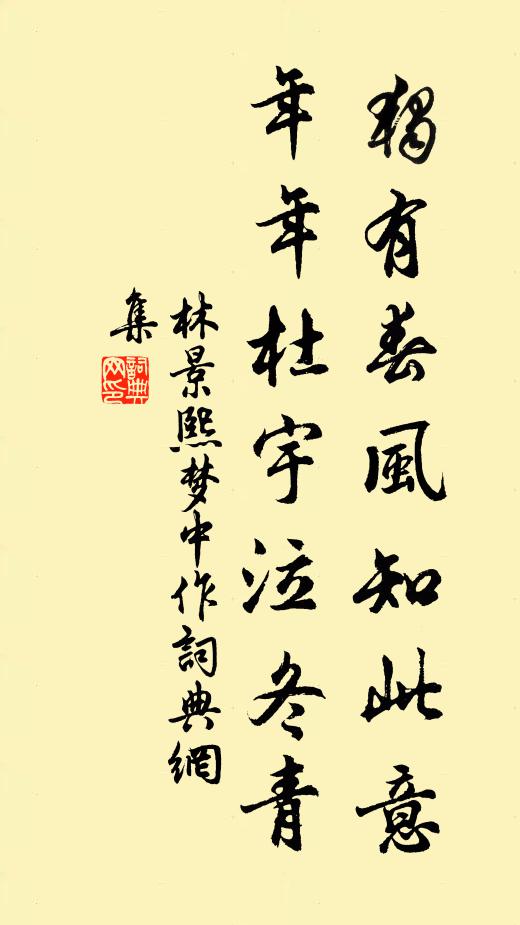 獨有春風知此意
年年杜宇泣冬青
林景熙梦中作詞典網
集
詞典
网印